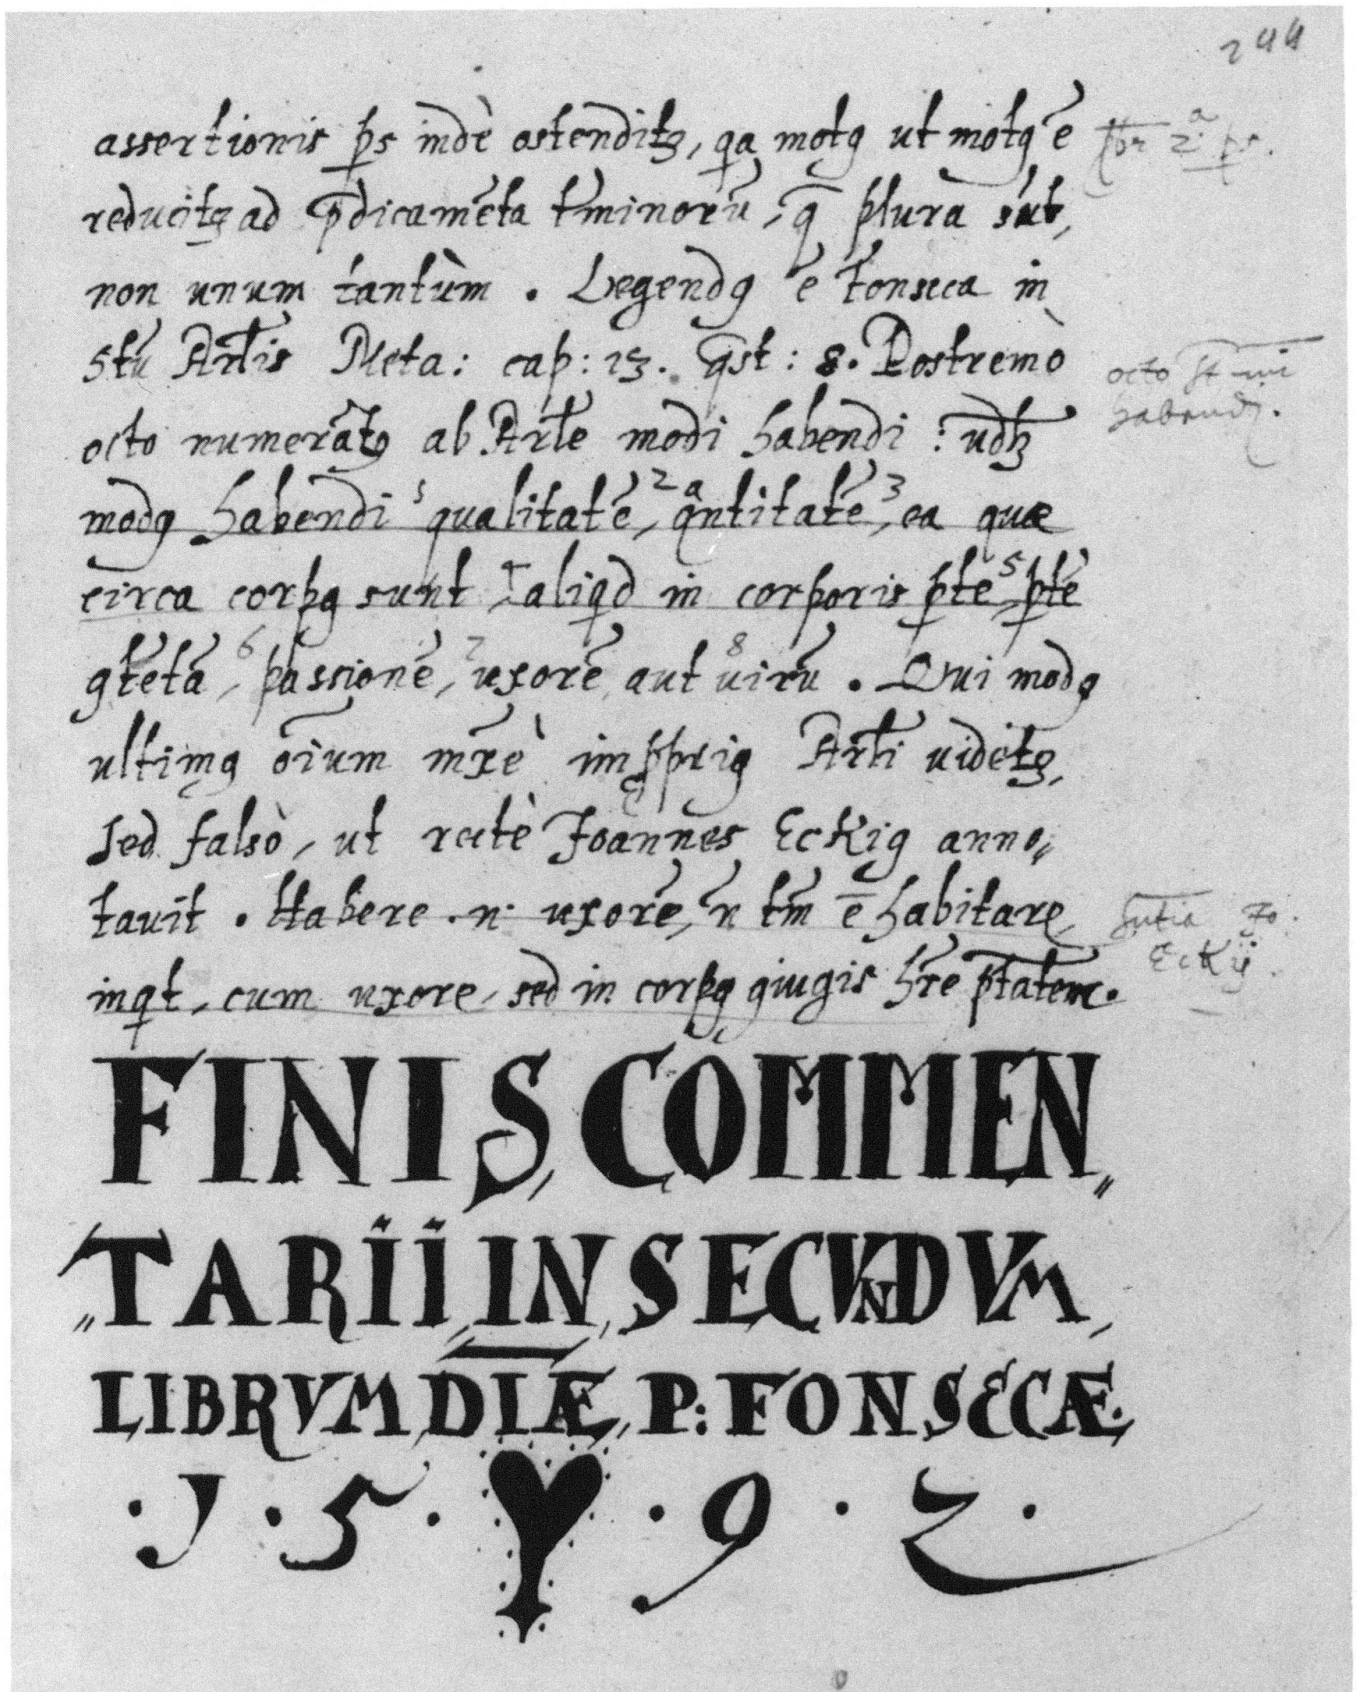 244
assertionis ps indè ostenditꝫ, qa motꝯ ut motꝯ ē
reducitꝫ ad p̄dicamēta tm̄inorū, q̄ plura sūt,
non unum tantùm . Legendꝯ ē Fonseca in
5tū Arl̄is Meta: cap: 13. q̄st: 8. Postremò
octo numerātꝫ ab Arl̄e modi habendi : udꝫ
modꝯ habendi 1 qualitatē, 2 qᵃntitatē, 3 ea quæ
circa corpꝯ sunt, 4 aliqd in corporis pte, 5 ptē
ꝯtētā, 6 passionē, 7 uxorē aut 8 uirū . Qui modꝯ
ultimꝯ oīum mx̄è imꝓpriꝯ Arl̄i uidetꝫ,
sed falsò, ut rectè Joannes Eckiꝯ anno„
tauit . Habere .n. uxorē, n̄ tm̄ ē habitare,
inqt, cum uxore, sed in corpꝯ ꝯiugis hr̄e ptātem.
2ᵃ ps.
octo st mi
habendi.
sn̄tia Jo.
Eckij
FINIS, COMMEN„
„TARII, IN, SECUNDVM,
LIBRVM DIÆ, P: FONSECÆ.
. 1 . 5 . . 9 . 2 .